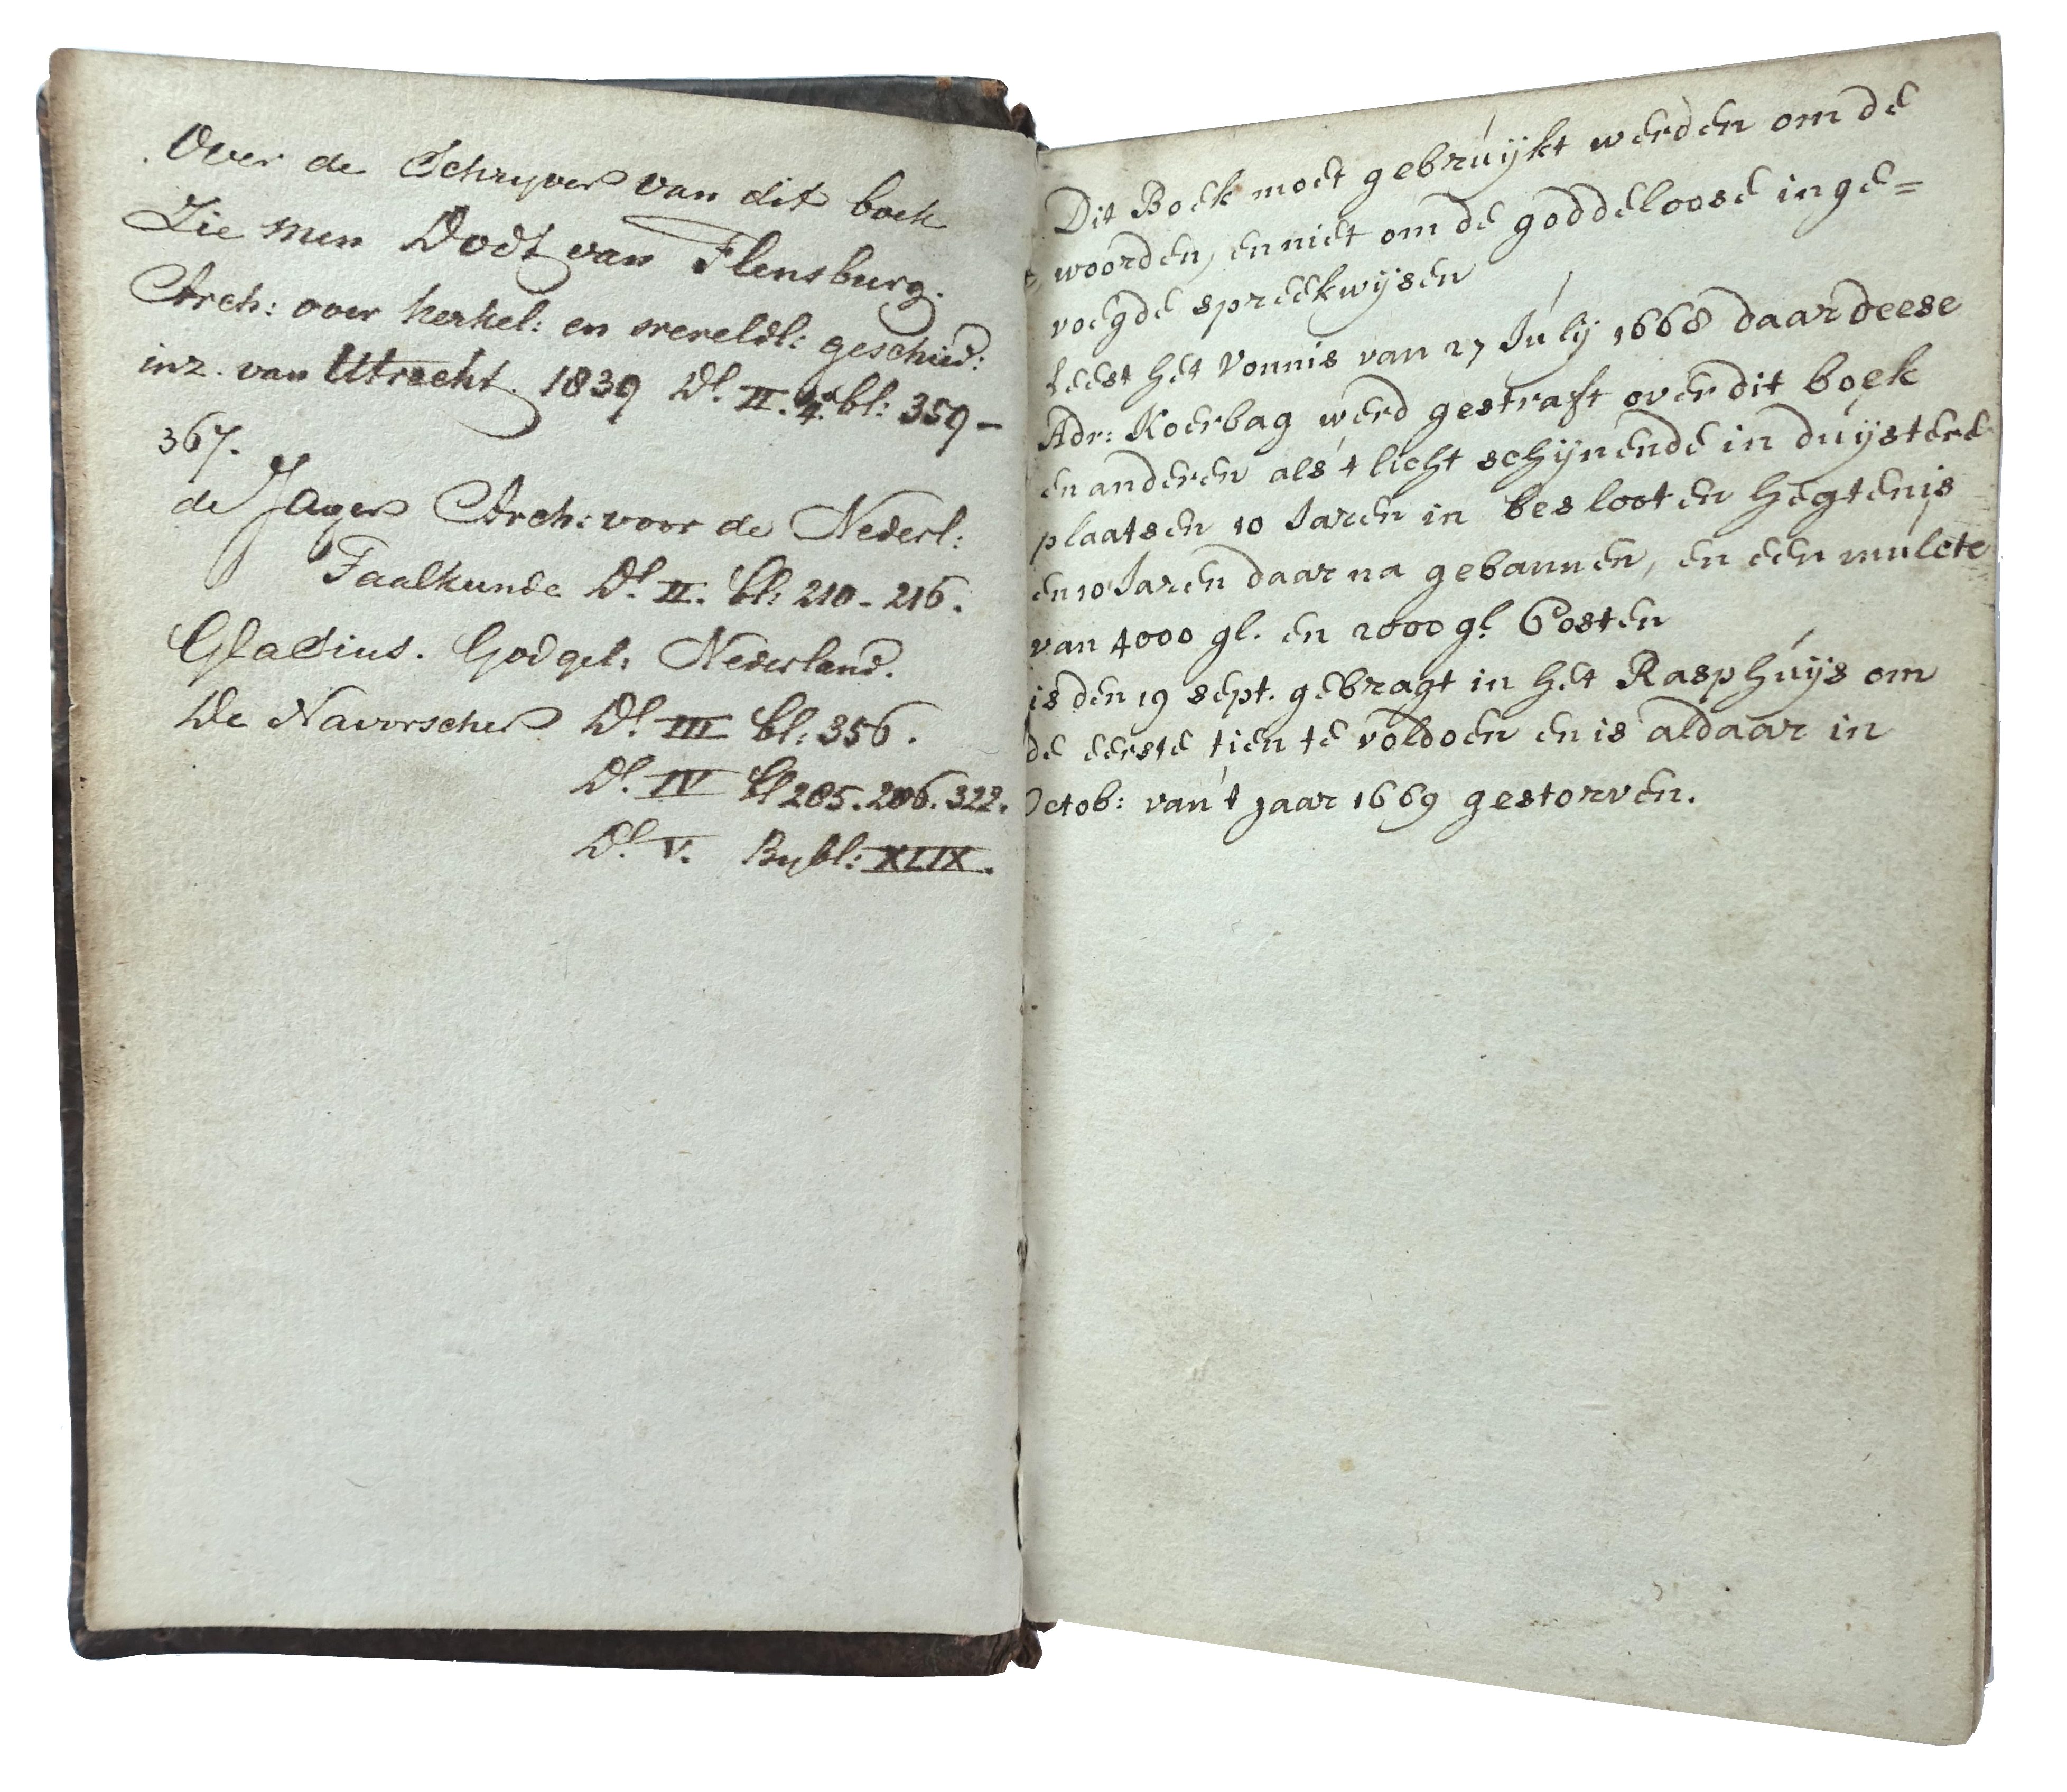 Over de Schryver van dit boek
Zie men Dodt van Flensburg.
Arch: over kerkel: en wereldl: geschied:
inz. van Utrecht. 1839 Dl. II. 4. bl: 359 –
367.
de Jager Arch: voor de Nederl:
Taalkunde Dl. II. bl: 210 - 216.
Glasius. Godgel: Nederland.
De Navorscher Dl. III bl: 356.
Dl. IV bl 285. 286. 322.
Dl. V. Bybl: XLIX.
Dit Boek moet gebruykt werden om de
woorden, en niet om de goddeloose inge=
voegde spreekwysen
leest het vonnis van 27 July 1668 daar deese
Adr: Koerbag werd gestraft over dit boek
en anderen als 't licht schynende in duystere
plaatsen 10 Jaren in beslooten hegtenis
en 10 Jaren daar na gebannen, en een mulcte
van 4000 gl. en 2000 gl. Costen
is den 19 sept. gebragt in het Rasphuys om
de eerste tien te voldoen en is aldaar in
Octob: van 't jaar 1669 gestorven.